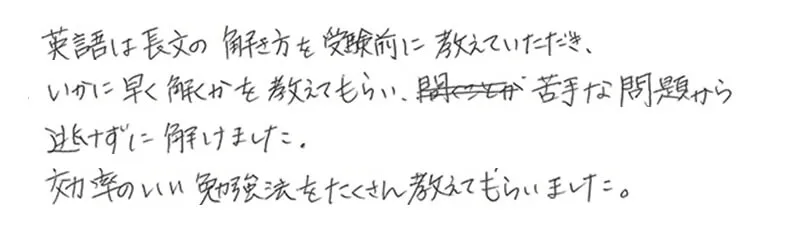 英語は長文の解き方を受験前に教えていただき、
いかに早く解くかを教えてもらい、苦手な問題から
逃げずに解けました。
効率のいい勉強法をたくさん教えてもらいました。